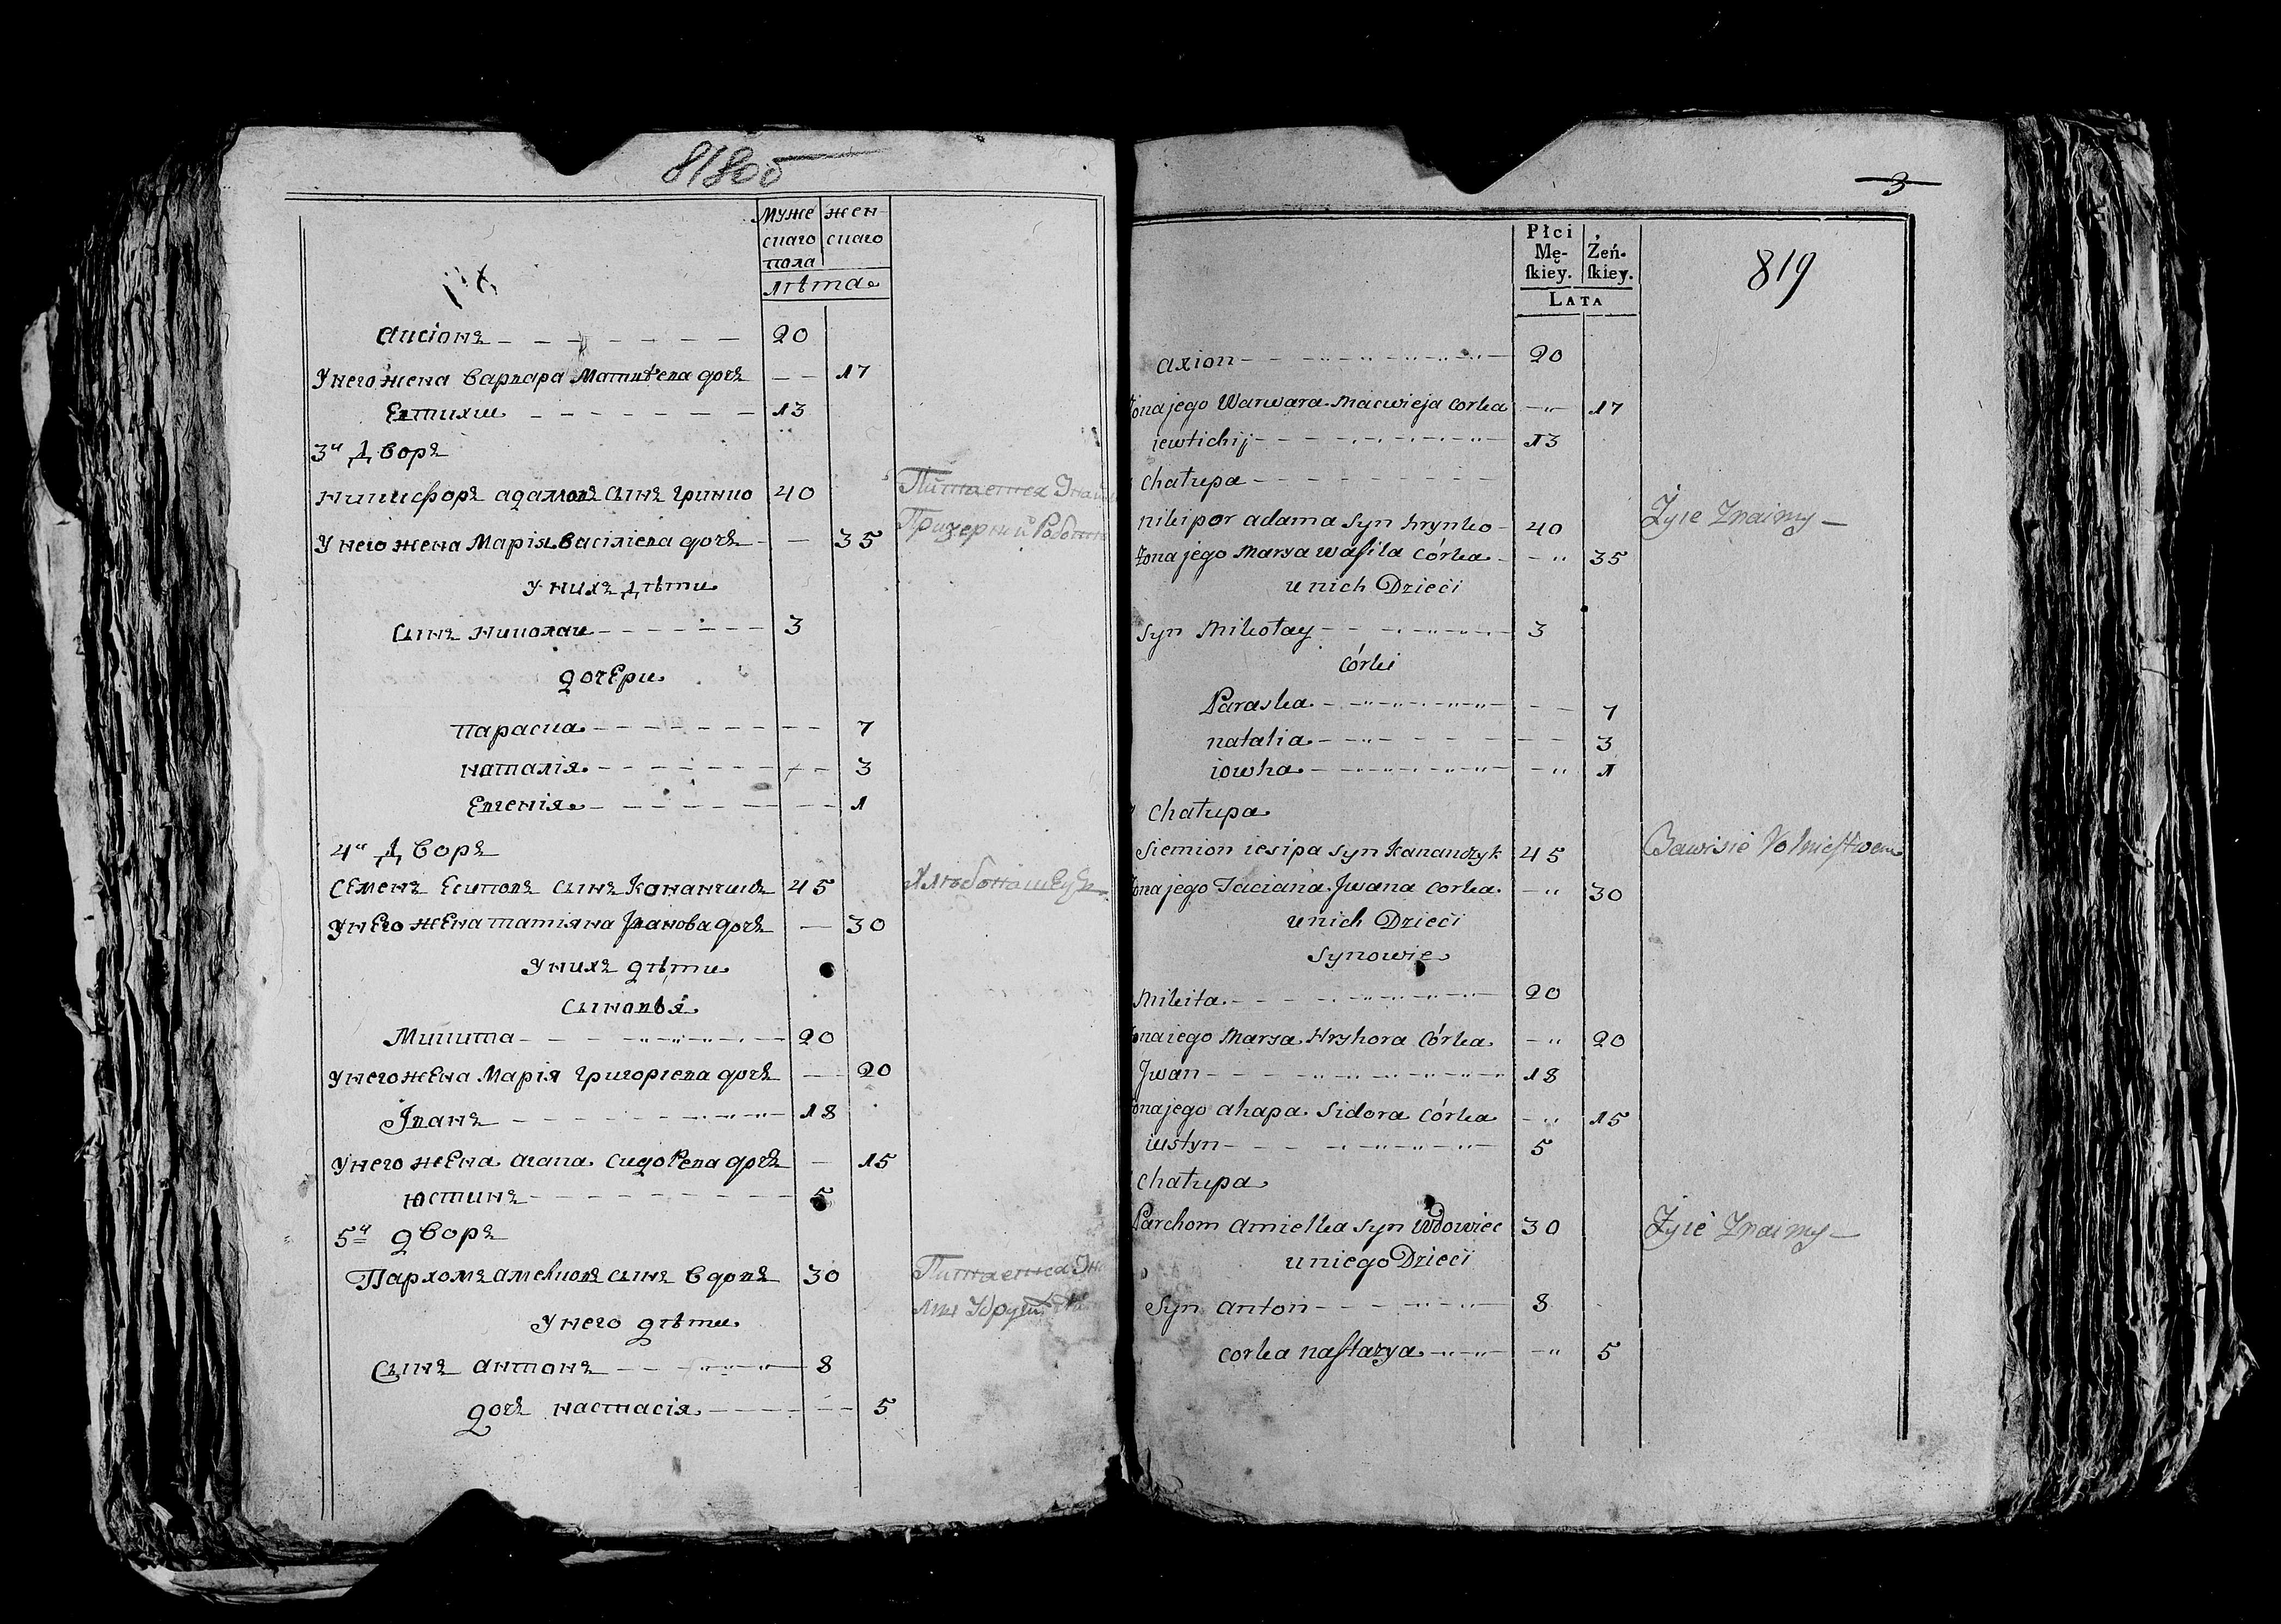 818об
Муже жен
скаго скаго
пола
лѣта
Аксіонъ 20
У него жена Варвара Матвѣева дочъ 17
Евтихи 13
3й Дворъ
Никифоръ Адамовъ сынъ Гринко 40
Питается
У него жена Марія Василіева дочъ 35
У нихъ дѣти
Сынъ Николаи 3
дочери
Параска 7
Наталія 3
Евгенія 1
4й Дворъ
Семенъ Есиповъ сынъ Кананчикъ 45
Хлѣбопашецъ
У него жена Татіяна Іванова дочъ 30
У нихъ дѣти
Сыновья
Микита 20
У него жена Марія Григоріева дочъ 20
Іванъ 18
У него жена Агапа Сидорева дочъ 15
Юстинъ 5
5й дворъ
Пархомъ Амелковъ сынъ вдовъ 30
Питается
У него дѣти
Сынъ Антонъ 8
дочъ Настасія 5
3
819
Płci
Mę- Żeń-
skiey. skiey.
LATA
axion 20
żona jego Warwara Macwieja corka 17
iewtichij 13
chałupa
nikipor adama syn hrynko 40
Żyie Znaimy
żona jego Marya wasila córka 35
u nich Dzieci
syn Mikołay 3
córki
Paraska 7
natalia 3
iowha 1
chałupa
Siemion iesipa syn Kanandzyk 45
Bawisie Rolnictwem
żona jego Taciana Jwana corka 30
u nich Dzieci
synowie
Mikita 20
żona iego Marya Hryhora córka 20
Jwan 18
żona jego ahapa Sidora córka 15
iustyn 5
chałupa
Parchom amielka syn Wdowiec 30
Żyie Znaimy
u niego Dzieci
Syn anton 8
corka nastazya 5